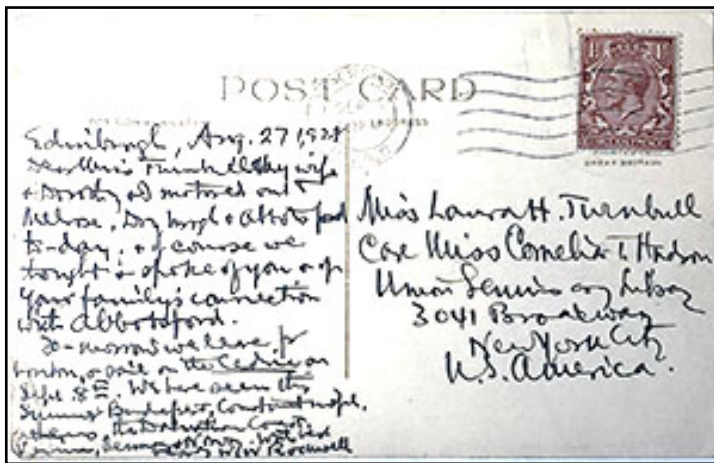 POST CARD
Edinburgh, Aug. 27, 1928
Dear Miss Turnbull: My wife
& Dorothy & I motored out
Melrose, Dryburgh & Abbotsford
to-day, & of course we
thought & spoke of you & of
your family's connection
with Abbotsford.
To-morrow we leave for
London, & sail on the Cedric on
Sept. 8th. We have seen this
summer Budapest, Constantinople,
Athens, the Dalmatian Coast,
Germany
Rockwell
Miss Laura H. Turnbull
Care Miss Cornelia T. Hudson
Union Seminary Library
3041 Broadway
New York City
U.S. America.